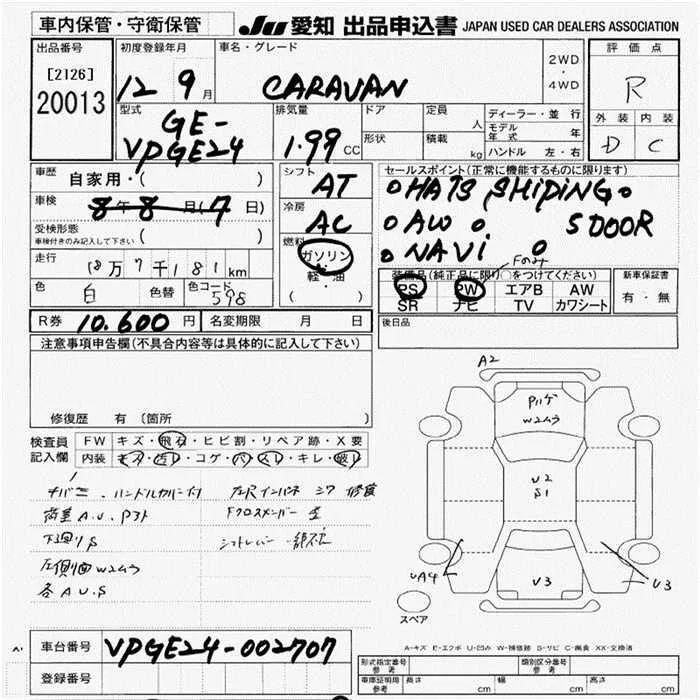 車内保管・守衛保管 JU 愛知 出品申込書 JAPAN USED CAR DEALERS ASSOCIATION
出品番号 初度登録年月 車名・グレード 評価点
[2126] 12 9月 CARAVAN 2WD・4WD R
20013 型式 排気量 ドア 定員 人 ディーラー・並行 外装 内装
GE-VPGE24 1.99CC 形状 積載 kg モデル年式 年 D C
ハンドル 左・右
車歴 自家用・( ) シフト AT セールスポイント(正常に機能するものに限ります)
車検 8年8月(7日) 冷房 AC HATS SHIPING
受検形態 ( ) AW 5DOOR
車検付きのみ記入して下さい
燃料 ガソリン・軽・油 ( ) NAVI
走行 18万7千181km 装備品(純正品に限り○をつけてください) 新車保証書
色 白 色替 色コード 598 PS PW エアB AW 有・無
SR ナビ TV カワシート
R券 10.600円 名変期限 月 日 後日品
注意事項申告欄(不具合内容等は具体的に記入して下さい)
修復歴 有(箇所
検査員記入欄 FW キズ・飛石・ヒビ割・リペア跡・X要
内装 キズ・汚レ・コゲ・穴・スレ・キレ・破レ
ハンドルカバー
荷室A.U.
下廻りS
左側面W2ムラ
各A U.S
Fクロスメンバー
シフトレバー
A2
W2ムラ
U2
S1
V3
UA4
U3
スペア
A-キズ E-エクボ U-凹み W-補修跡 S-サビ C-腐食 XX-交換済
車台番号 VPGE24-002707
登録番号
形式指定番号 参考 類別区分番号 参考
車庫証明用 参考 長さ cm 幅 cm 高さ cm